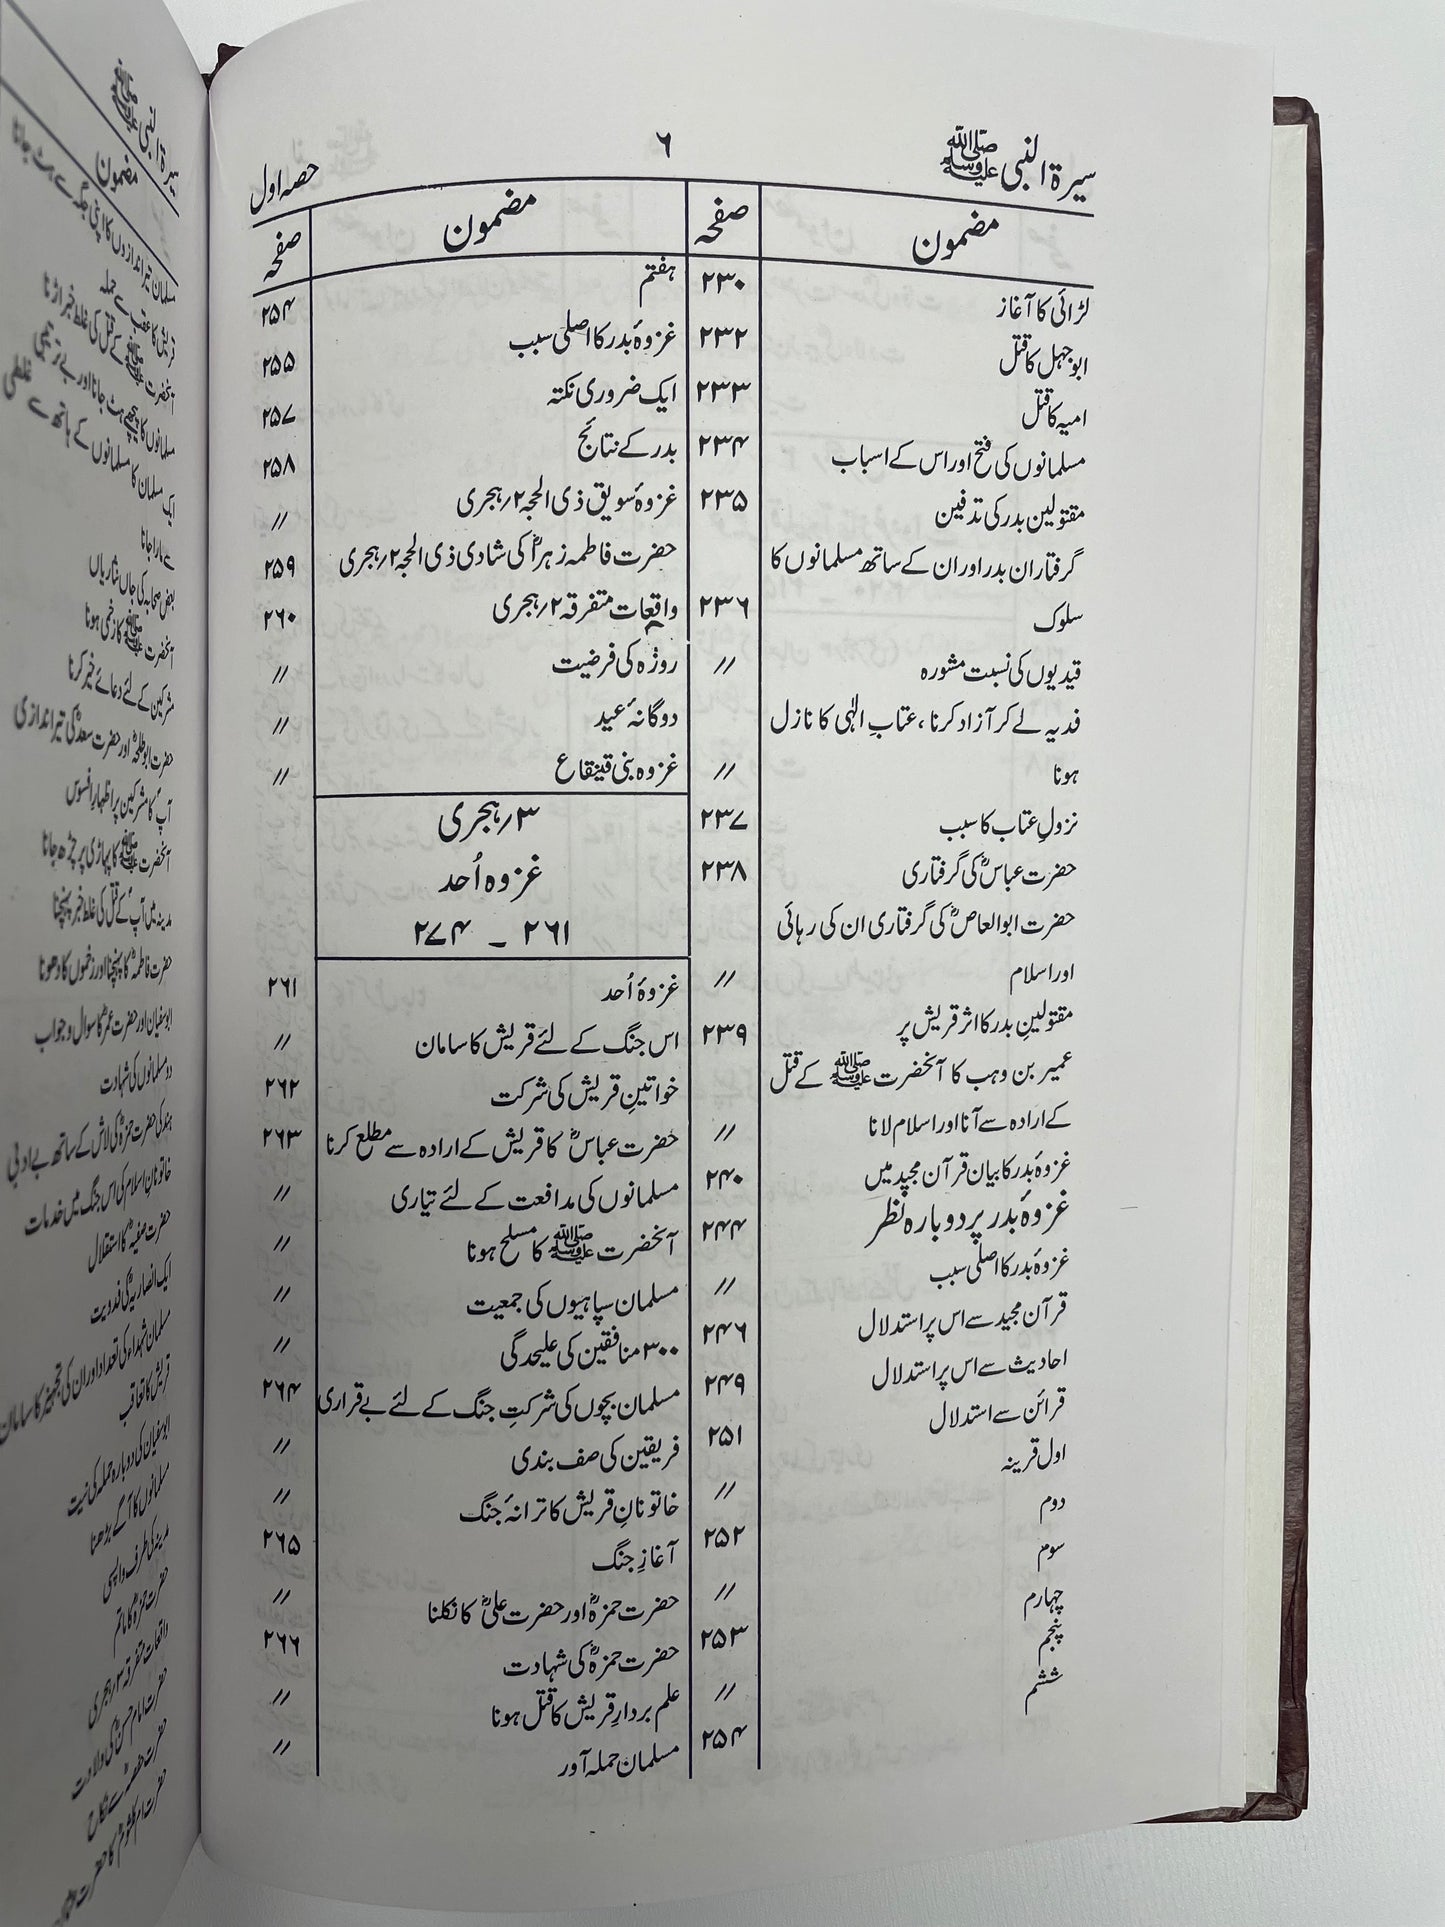 سیرۃ النبی ﷺ
۶
حصہ اول
مضمون
صفحہ
لڑائی کا آغاز ۲۳۰
ابو جہل کا قتل ۲۳۲
امیہ کا قتل ۲۳۳
مسلمانوں کی فتح اور اس کے اسباب ۲۳۴
مقتولین بدر کی تدفین ۲۳۵
گرفتاران بدر اور ان کے ساتھ مسلمانوں کا
سلوک ۲۳۶
قیدیوں کی نسبت مشورہ ؍؍
فدیہ لے کر آزاد کرنا، عتابِ الٰہی کا نازل
ہونا ؍؍
نزولِ عتاب کا سبب ۲۳۷
حضرت عباسؓ کی گرفتاری ۲۳۸
حضرت ابوالعاصؓ کی گرفتاری ان کی رہائی
اور اسلام ؍؍
مقتولینِ بدر کا اثر قریش پر ۲۳۹
عمیر بن وہب کا آنحضرت ﷺ کے قتل
کے ارادہ سے آنا اور اسلام لانا ؍؍
غزوۂ بدر کا بیان قرآن مجید میں ۲۴۰
غزوۂ بدر پر دوبارہ نظر ۲۴۴
غزوۂ بدر کا اصلی سبب ؍؍
قرآن مجید سے اس پر استدلال ۲۴۶
احادیث سے اس پر استدلال ۲۴۹
قرائن سے استدلال ۲۵۱
اول قرینہ ؍؍
دوم ۲۵۲
سوم ؍؍
چہارم ۲۵۳
پنجم ؍؍
ششم ۲۵۴
مضمون
صفحہ
ہفتم ۲۵۴
غزوۂ بدر کا اصلی سبب ۲۵۵
ایک ضروری نکتہ ۲۵۷
بدر کے نتائج ۲۵۸
غزوۂ سویق ذی الحجہ ۲؍ہجری ؍؍
حضرت فاطمہ زہراؓ کی شادی ذی الحجہ ۲؍ہجری ۲۵۹
واقعات متفرقہ ۲؍ہجری ۲۶۰
روزہ کی فرضیت ؍؍
دوگانۂ عید ؍؍
غزوہ بنی قینقاع ؍؍
۳؍ہجری
غزوہ اُحد
۲۶۱ ۔ ۲۷۴
غزوۂ اُحد ۲۶۱
اس جنگ کے لئے قریش کا سامان ؍؍
خواتینِ قریش کی شرکت ۲۶۲
حضرت عباسؓ کا قریش کے ارادہ سے مطلع کرنا ۲۶۳
مسلمانوں کی مدافعت کے لئے تیاری ؍؍
آنحضرت ﷺ کا مسلح ہونا ؍؍
مسلمان سپاہیوں کی جمعیت ؍؍
۳۰۰ منافقین کی علیحدگی ؍؍
مسلمان بچوں کی شرکتِ جنگ کے لئے بے قراری ۲۶۴
فریقین کی صف بندی ؍؍
خاتونانِ قریش کا ترانۂ جنگ ؍؍
آغازِ جنگ ۲۶۵
حضرت حمزہؓ اور حضرت علیؓ کا نکلنا ؍؍
حضرت حمزہؓ کی شہادت ۲۶۶
علم بردارِ قریش کا قتل ہونا ؍؍
مسلمان حملہ آور ؍؍
سیرۃ النبی ﷺ
مضمون
مسلمان تیر اندازوں کا اپنی جگہ سے ہٹ جانا
قریش کا عقب سے حملہ
آنحضرت ﷺ کے قتل کی غلط خبر اڑنا
ایک مسلمان کا مسلمانوں کے ہاتھ سے غلطی
سے مارا جانا
بعض صحابہ کی جاں نثاریاں
آنحضرت ﷺ کا زخمی ہونا
مشرکین کے لئے دعائے خیر کرنا
حضرت ابوطلحہؓ اور حضرت سعدؓ کی تیر اندازی
آپ کا مشرکین پر اظہارِ افسوس
آنحضرت ﷺ کا پہاڑی پر چڑھ جانا
مدینہ میں آپ کے قتل کی غلط خبر پہنچنا
حضرت فاطمہؓ کا پہنچنا اور زخموں کا دھونا
ابوسفیان اور حضرت عمرؓ کا سوال و جواب
دو مسلمانوں کی شہادت
ہند کی حضرت حمزہؓ کی لاش کے ساتھ بے ادبی
خاتونانِ اسلام کی اس جنگ میں خدمات
حضرت صفیہؓ کا استقلال
ایک انصاریہ کی فدویت
مسلمان شہداء کی تعداد اور ان کی تجہیز کا سامان
قریش کا تعاقب
ابوسفیان کی دوبارہ حملہ کی نیت
مسلمانوں کا آگے بڑھنا
مدینہ کی طرف واپسی
حضرت حمزہؓ کا ماتم
واقعات متفرقہ ۳؍ہجری
حضرت امام حسنؓ کی ولادت
حضرت حفصہؓ سے نکاح